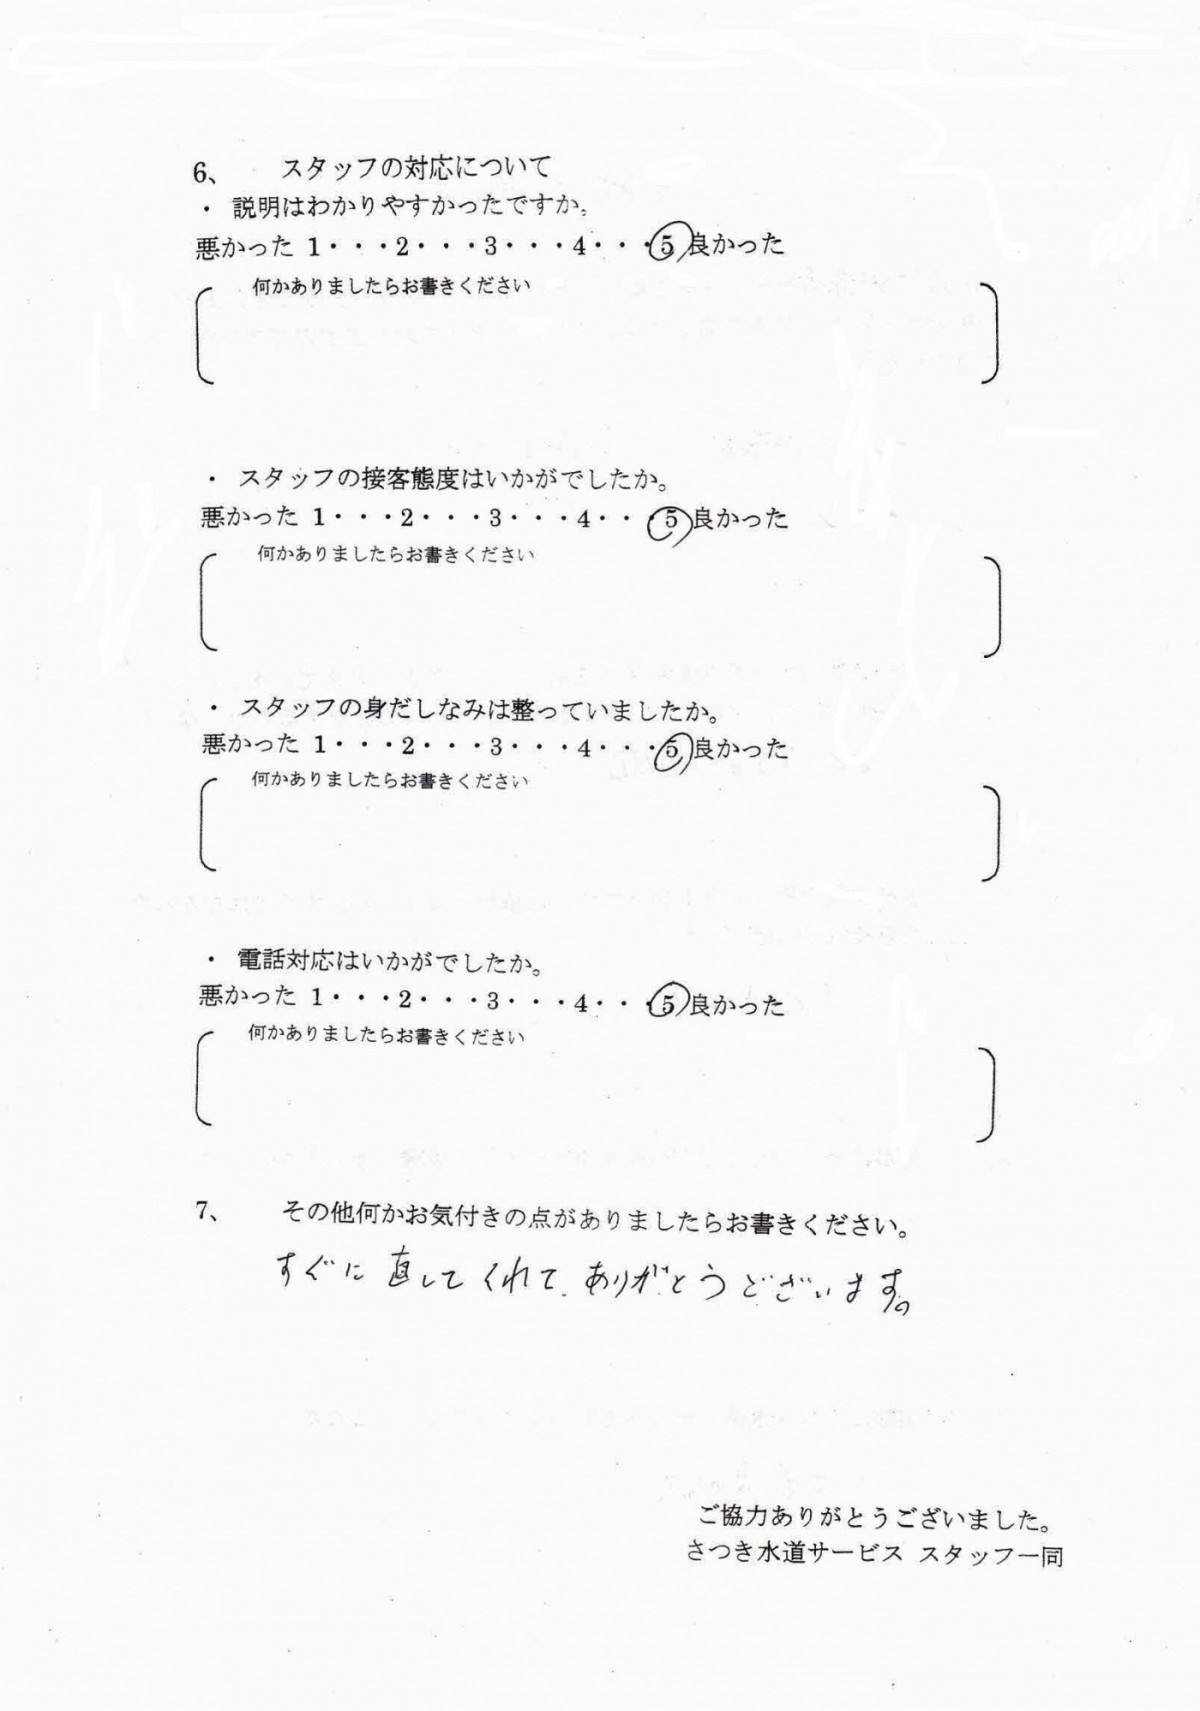 6、　スタッフの対応について
・ 説明はわかりやすかったですか。
悪かった 1・・・2・・・3・・・4・・・5 良かった
何かありましたらお書きください
・ スタッフの接客態度はいかがでしたか。
悪かった 1・・・2・・・3・・・4・・・5 良かった
何かありましたらお書きください
・ スタッフの身だしなみは整っていましたか。
悪かった 1・・・2・・・3・・・4・・・5 良かった
何かありましたらお書きください
・ 電話対応はいかがでしたか。
悪かった 1・・・2・・・3・・・4・・・5 良かった
何かありましたらお書きください
7、　その他何かお気付きの点がありましたらお書きください。
すぐに直してくれて、ありがとうございます。
ご協力ありがとうございました。
さつき水道サービス スタッフ一同